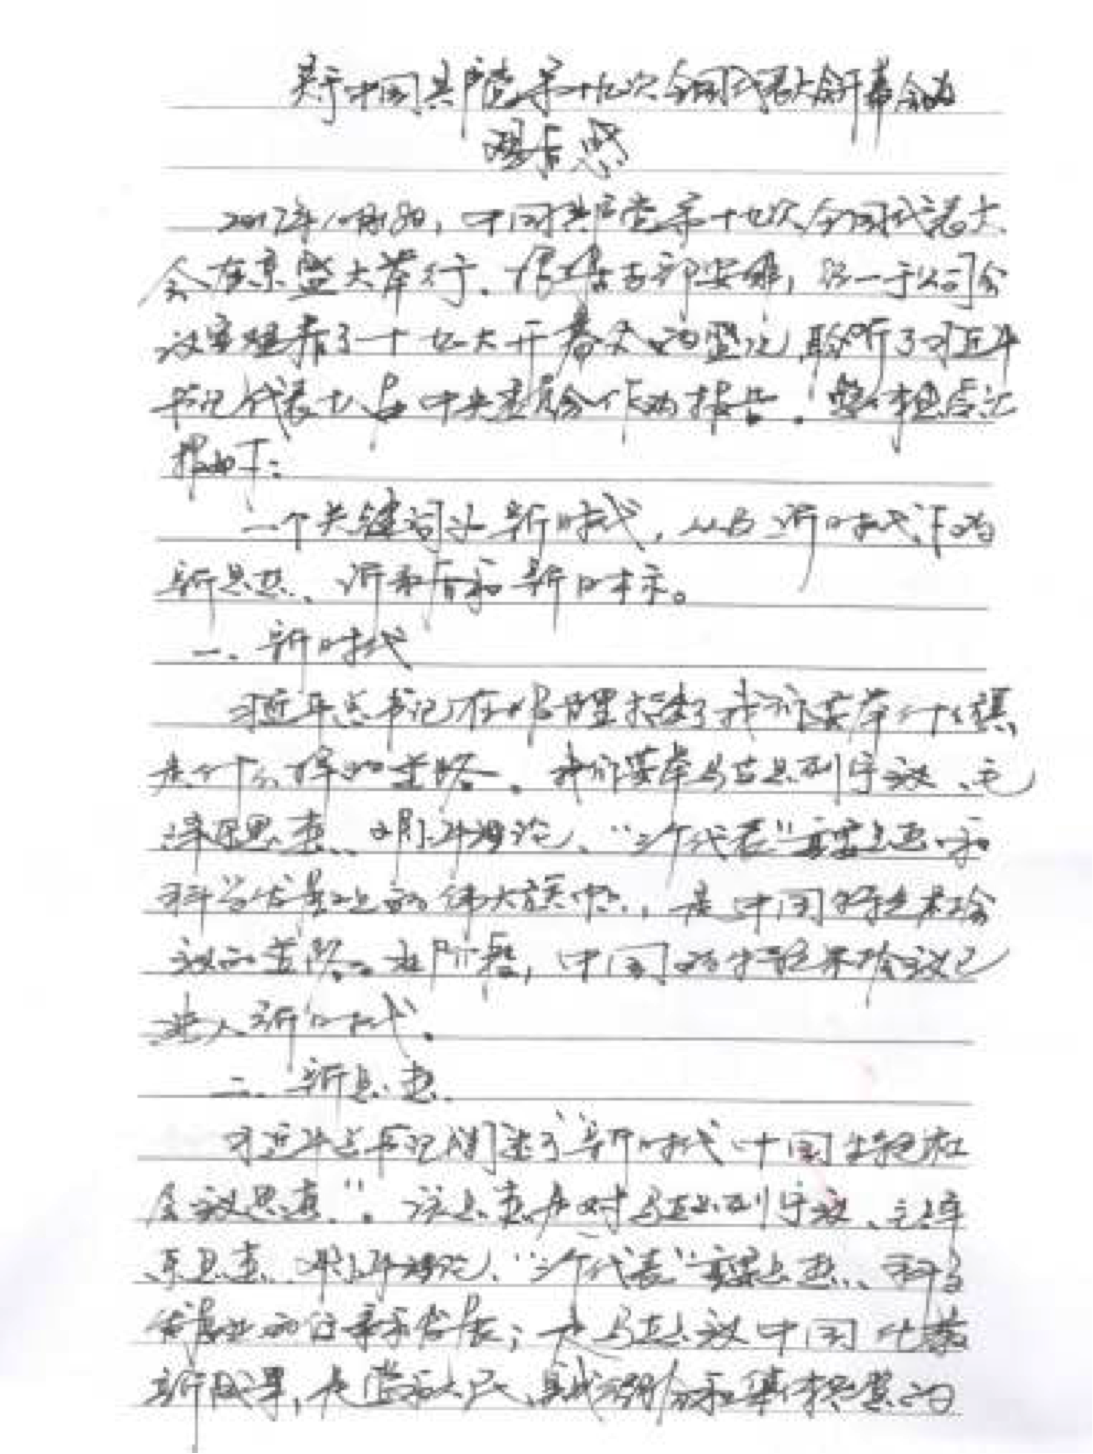 关于中国共产党第十九次全国代表大会开幕会的
观后感
2017年10月18日，中国共产党第十九次全国代表大
会在京盛大举行。根据支部安排，统一于公司会
议室观看了十九大开幕会的盛况，聆听了习近平
书记代表十八届中央委员会作的报告。整体观后汇
报如下：
一个关键词为新时代，以及新时代下的
新思想、新和新目标。
一、新时代
习近平总书记在报告里指出了我们要举什么旗
走什么样的道路。我们要举马克思列宁主义、毛
泽东思想、邓小平理论、“三个代表”重要思想和
科学发展观的伟大旗帜，走中国特色社会主
义的道路。现阶段，中国特色社会主义已
进入新时代。
二、新思想
习近平总书记阐述了“新时代中国特色社
会主义思想”。该思想是对马克思列宁主义、毛泽
东思想、邓小平理论、“三个代表”重要思想、科学
发展观的继承和发展；是马克思主义中国化最
新成果，是党和人民实践经验和集体智慧的